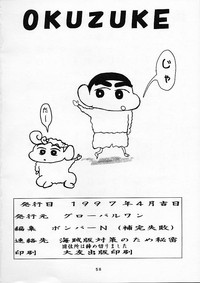 OKUZUKE
じゃ
発行日 1997年4月吉日
発行元 グローバルワン
編集 ボンバーN (補定失敗)
連絡先 海賊版対策のため秘密
住所は締め切りました
印刷 大友出版印刷